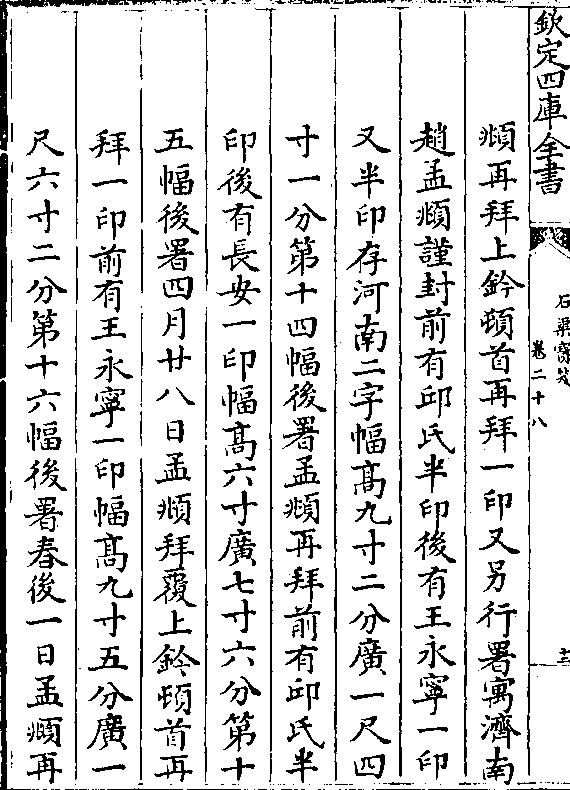 欽定四庫全書
石渠寳笈
卷二十八
十三
頫再拜上鈐頓首再拜一印又另行署寓濟南
趙孟頫謹封前有邱氏半印後有王永寧一印
又半印存河南二字幅髙九寸二分廣一尺四
寸一分第十四幅後署孟頫再拜前有邱氏半
印後有長安一印幅髙六寸廣七寸六分第十
五幅後署四月廿八日孟頫拜覆上鈐頓首再
拜一印前有王永寧一印幅髙九寸五分廣一
尺六寸二分第十六幅後署春後一日孟頫再